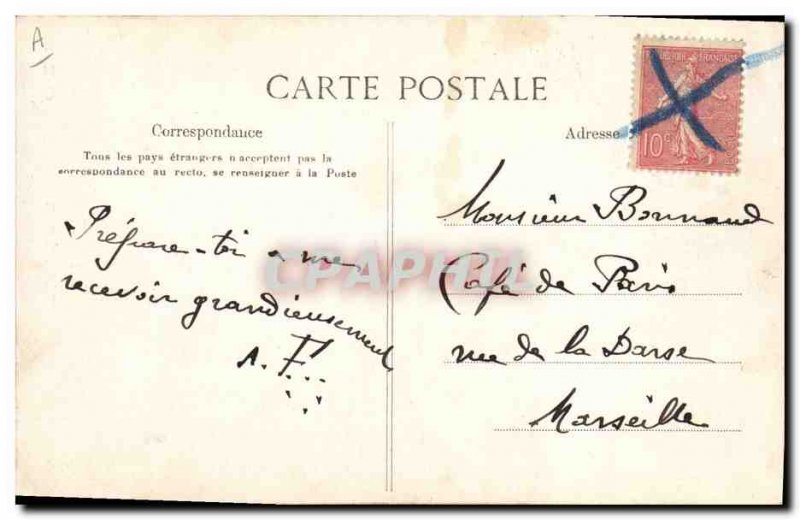 A
CARTE POSTALE
Correspondance
Adresse
Tous les pays étrangers n'acceptent pas la
correspondance au recto, se renseigner à la Poste
10c
Prépare-toi a me
recevoir grandieusement
A. F...
Monsieur Bonnaud
Café de Paris
rue de la Darse
Marseille
CPAPHIL